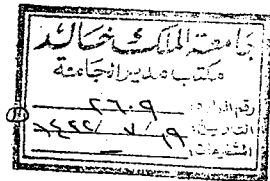 جامعة الملك خالد
مكتب مدير الجامعة
رقم الوارد: ٢٦٠٩
التاريخ: ١٩ / ٧ / ١٤٢٢
المشفوعات: